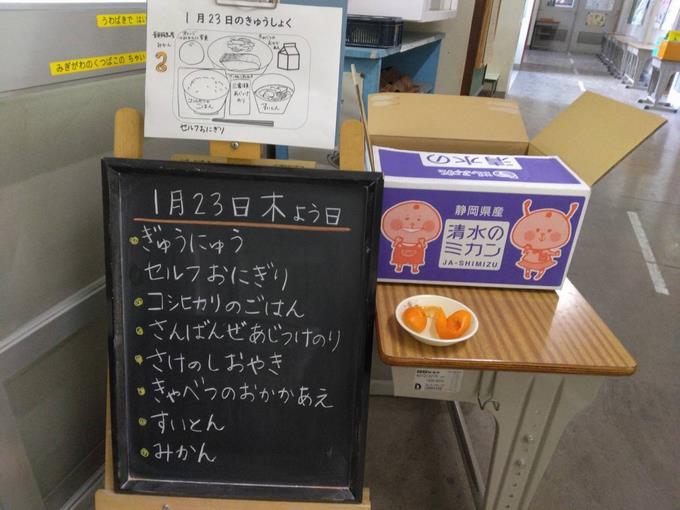 うわばきで はい
みぎがわのくつばこの ちゃい
1月23日のきゅうしょく
みかん
2
コシヒカリの
ごはん
すいとん
セルフおにぎり
1月23日木よう日
ぎゅうにゅう
セルフおにぎり
コシヒカリのごはん
さんばんぜあじつけのり
さけのしおやき
きゃべつのおかかあえ
すいとん
みかん
清水の
静岡県産
清水の
ミカン
JA-SHIMIZU